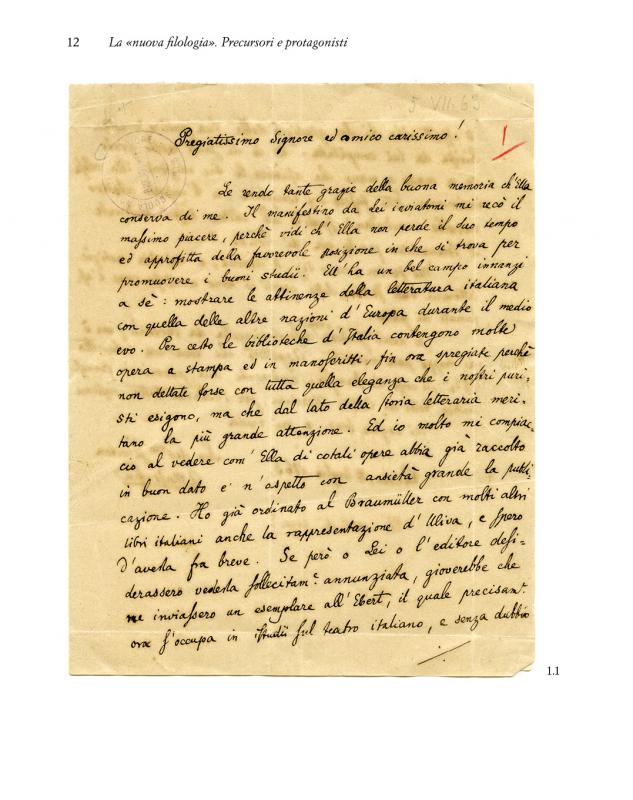 12 La «nuova filologia». Precursori e protagonisti
5 VII. 63
1
Pregiatissimo Signore ed amico carissimo!
Le rendo tante grazie della buona memoria ch'Ella
conserva di me. Il manifestino da Lei inviatomi mi recò il
massimo piacere, perchè vidi ch'Ella non perde il Suo tempo
ed approfitta della favorevole posizione in che si trova per
promuovere i buoni studii. Ell'ha un bel campo innanzi
a sè: mostrare le attinenze della letteratura italiana
con quella delle altre nazioni d'Europa durante il medio
evo. Per certo le biblioteche d'Italia contengono molte
opera a stampa ed in manoscritti, fin ora spregiate perchè
non dettate forse con tutta quella eleganza che i nostri puri-
sti esigono, ma che dal lato della storia letteraria meri-
tano la più grande attenzione. Ed io molto mi compiac-
cio al vedere com'Ella di cotali opere abbia già raccolto
in buon dato e n'aspetto con ansietà grande la publi-
cazione. Ho già ordinato al Braumüller con molti altri
libri italiani anche la rappresentazione d'Uliva, e spero
d'averla fra breve. Se però o Lei o l'editore desi-
derassero vederla sollecitamᵉ. annunziata, gioverebbe che
ne inviassero un esemplare all'Ebert, il quale precisamᵉ.
ora s'occupa in studii sul teatro italiano, e senza dubbio
1.1